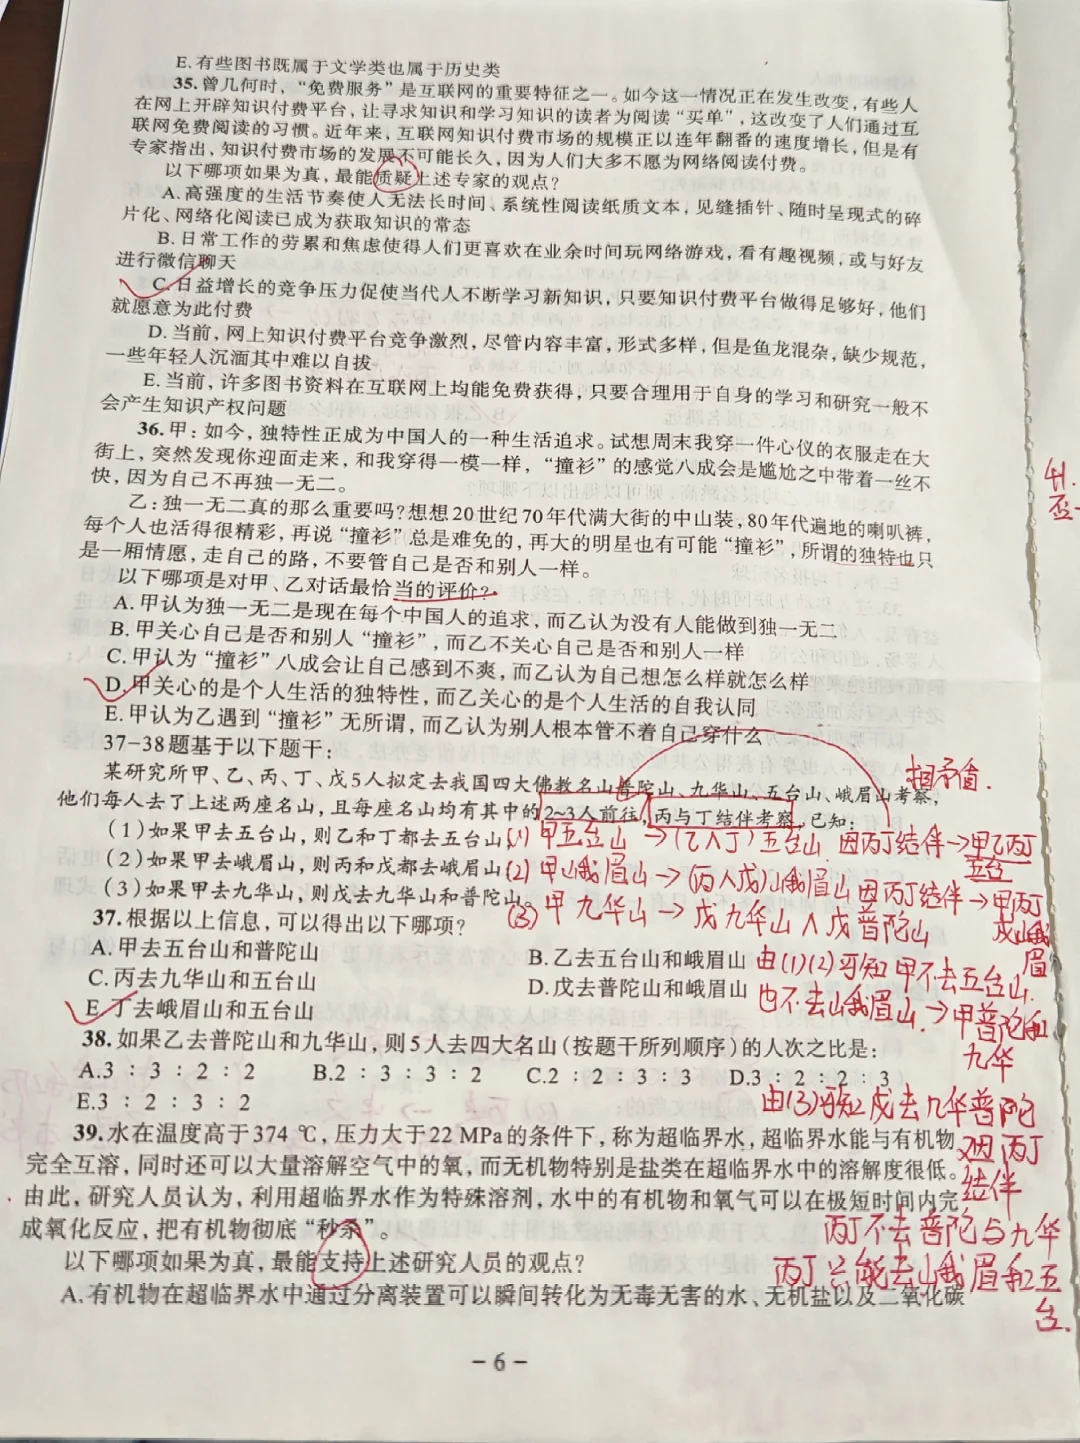 E.有些图书既属于文学类也属于历史类
35.曾几何时，“免费服务”是互联网的重要特征之一。如今这一情况正在发生改变，有些人
在网上开辟知识付费平台，让寻求知识和学习知识的读者为阅读“买单”，这改变了人们通过互
联网免费阅读的习惯。近年来，互联网知识付费市场的规模正以连年翻番的速度增长，但是有
专家指出，知识付费市场的发展不可能长久，因为人们大多不愿为网络阅读付费。
以下哪项如果为真，最能质疑上述专家的观点？
A.高强度的生活节奏使人无法长时间、系统性阅读纸质文本，见缝插针、随时呈现式的碎
片化、网络化阅读已成为获取知识的常态
B.日常工作的劳累和焦虑使得人们更喜欢在业余时间玩网络游戏，看有趣视频，或与好友
进行微信聊天
C.日益增长的竞争压力促使当代人不断学习新知识，只要知识付费平台做得足够好，他们
就愿意为此付费
D.当前，网上知识付费平台竞争激烈，尽管内容丰富，形式多样，但是鱼龙混杂，缺少规范，
一些年轻人沉湎其中难以自拔
E.当前，许多图书资料在互联网上均能免费获得，只要合理用于自身的学习和研究一般不
会产生知识产权问题
36.甲：如今，独特性正成为中国人的一种生活追求。试想周末我穿一件心仪的衣服走在大
街上，突然发现你迎面走来，和我穿得一模一样，“撞衫”的感觉八成会是尴尬之中带着一丝不
快，因为自己不再独一无二。
乙：独一无二真的那么重要吗？想想20世纪70年代满大街的中山装，80年代遍地的喇叭裤，
每个人也活得很精彩，再说“撞衫”总是难免的，再大的明星也有可能“撞衫”，所谓的独特也只
是一厢情愿，走自己的路，不要管自己是否和别人一样。
以下哪项是对甲、乙对话最恰当的评价？
A.甲认为独一无二是现在每个中国人的追求，而乙认为没有人能做到独一无二
B.甲关心自己是否和别人“撞衫”，而乙不关心自己是否和别人一样
C.甲认为“撞衫”八成会让自己感到不爽，而乙认为自己想怎么样就怎么样
D.甲关心的是个人生活的独特性，而乙关心的是个人生活的自我认同
E.甲认为乙遇到“撞衫”无所谓，而乙认为别人根本管不着自己穿什么
37-38题基于以下题干：
某研究所甲、乙、丙、丁、戊5人拟定去我国四大佛教名山普陀山、九华山、五台山、峨眉山考察，
他们每人去了上述两座名山，且每座名山均有其中的2~3人前往，丙与丁结伴考察，已知：
（1）如果甲去五台山，则乙和丁都去五台山；
（2）如果甲去峨眉山，则丙和戊都去峨眉山；
（3）如果甲去九华山，则戊去九华山和普陀山。
37.根据以上信息，可以得出以下哪项？
A.甲去五台山和普陀山
B.乙去五台山和峨眉山
C.丙去九华山和五台山
D.戊去普陀山和峨眉山
E.丁去峨眉山和五台山
38.如果乙去普陀山和九华山，则5人去四大名山（按题干所列顺序）的人次之比是：
A.3：3：2：2 B.2：3：3：2 C.2：2：3：3 D.3：2：2：3
E.3：2：3：2
39.水在温度高于374 ℃，压力大于22 MPa的条件下，称为超临界水，超临界水能与有机物
完全互溶，同时还可以大量溶解空气中的氧，而无机物特别是盐类在超临界水中的溶解度很低。
由此，研究人员认为，利用超临界水作为特殊溶剂，水中的有机物和氧气可以在极短时间内完
成氧化反应，把有机物彻底“秒杀”。
以下哪项如果为真，最能支持上述研究人员的观点？
A.有机物在超临界水中通过分离装置可以瞬间转化为无毒无害的水、无机盐以及二氧化碳
－6－
相矛盾.
(1) 甲五台山 → (乙∧丁)五台山 因丙丁结伴→甲乙丙丁
五台
(2) 甲峨眉山→(丙∧戊)峨眉山 因丙丁结伴→甲丙丁
戊峨
眉
(3) 甲九华山→戊九华山∧戊普陀山
由(1)(2)可知 甲不去五台山.
也不去峨眉山.→甲普陀和
九华
由(3)可知 戊去九华普陀
又因丙丁
结伴
丙丁不去普陀与九华
丙丁只能去峨眉和五
台.
41.